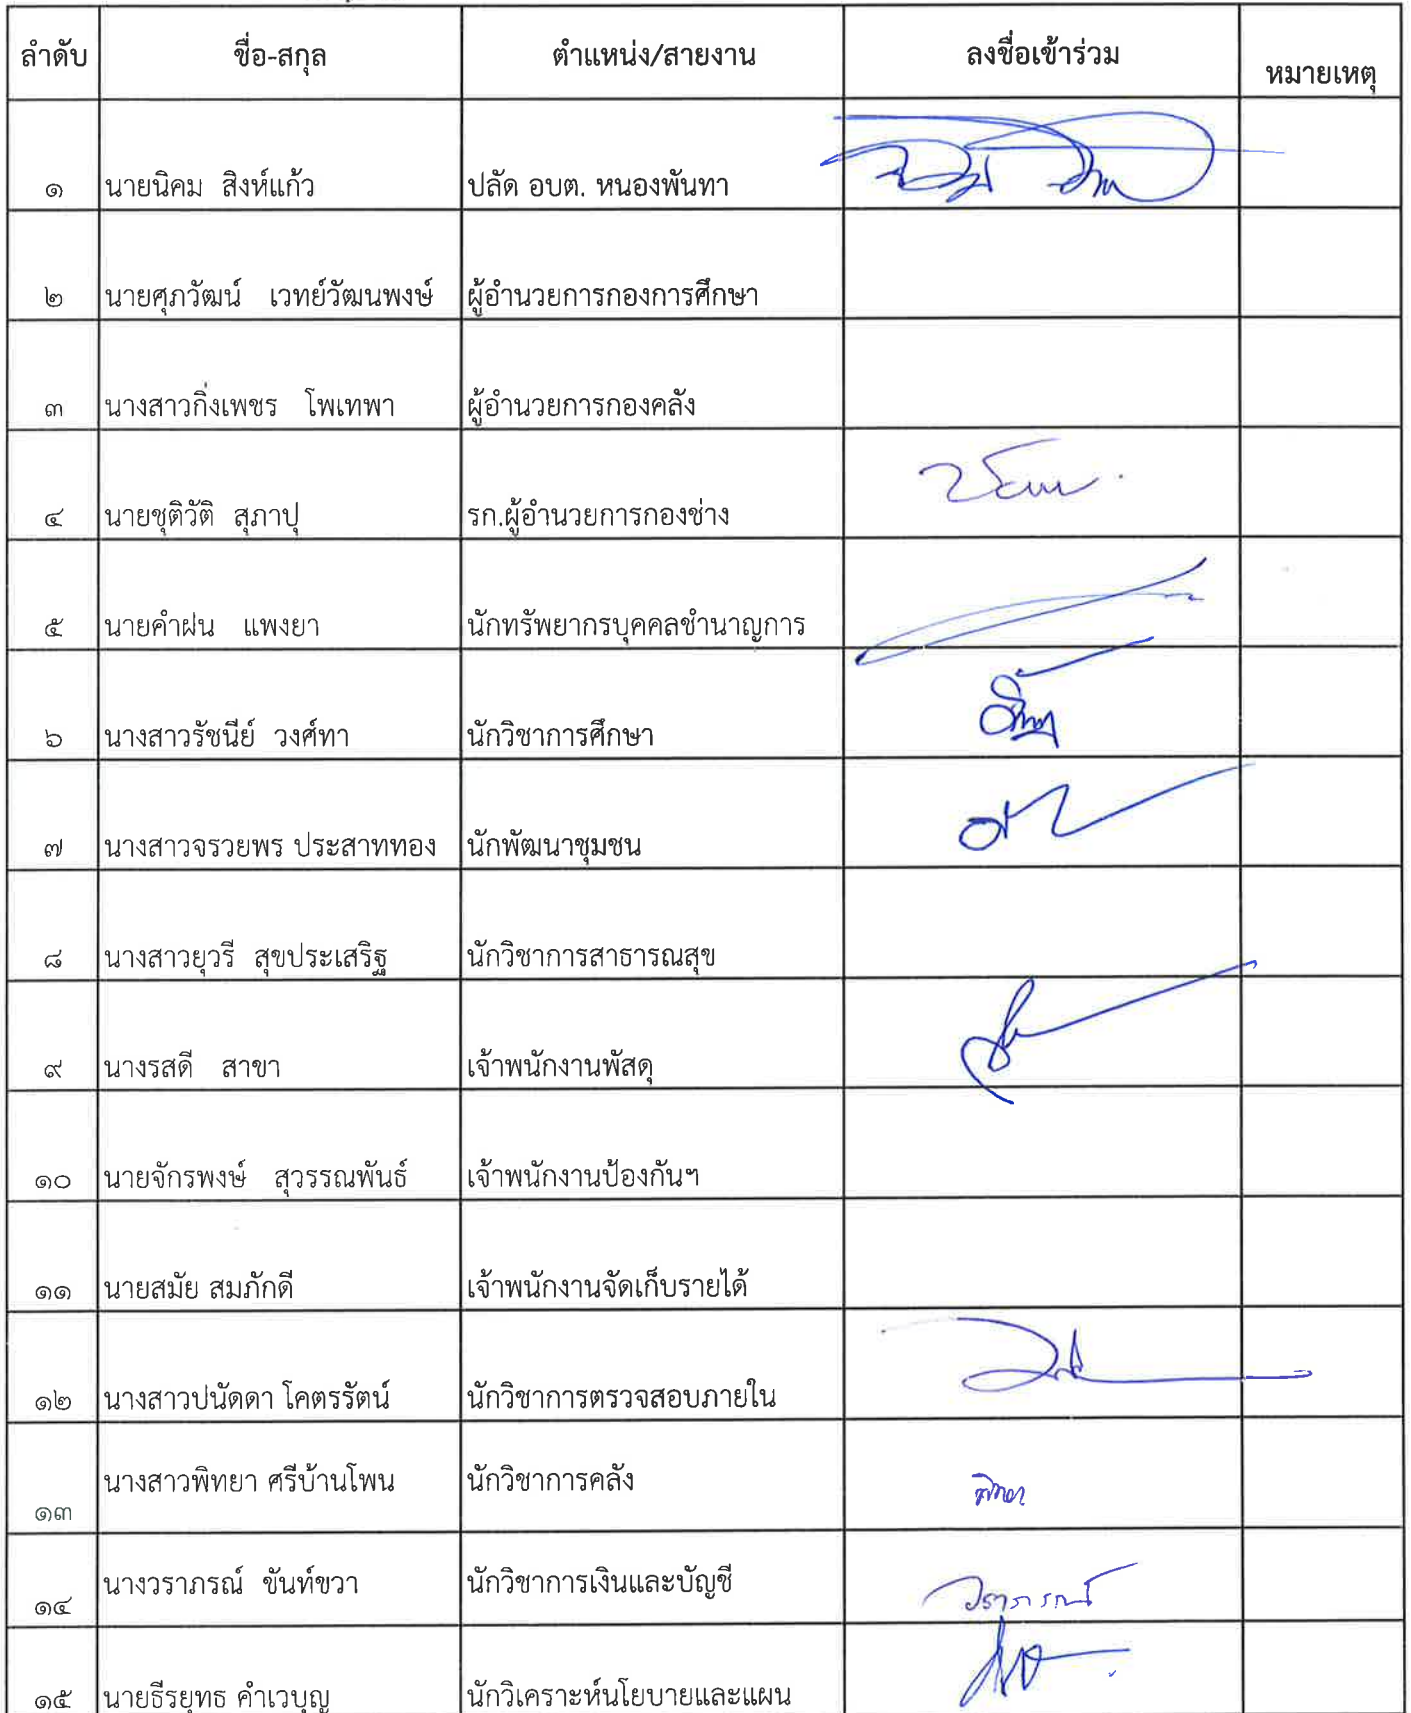 ลำดับ ชื่อ-สกุล ตำแหน่ง/สายงาน ลงชื่อเข้าร่วม หมายเหตุ
๑ นายนิคม สิงห์แก้ว ปลัด อบต. หนองพันทา
๒ นายศุภวัฒน์ เวทย์วัฒนพงษ์ ผู้อำนวยการกองการศึกษา
๓ นางสาวกิ่งเพชร โพเทพา ผู้อำนวยการกองคลัง
๔ นายชุติวัติ สุภาปุ รก.ผู้อำนวยการกองช่าง
๕ นายคำฝน แพงยา นักทรัพยากรบุคคลชำนาญการ
๖ นางสาวรัชนีย์ วงศ์ทา นักวิชาการศึกษา
๗ นางสาวจรวยพร ประสาททอง นักพัฒนาชุมชน
๘ นางสาวยุวรี สุขประเสริฐ นักวิชาการสาธารณสุข
๙ นางรสดี สาขา เจ้าพนักงานพัสดุ
๑๐ นายจักรพงษ์ สุวรรณพันธ์ เจ้าพนักงานป้องกันฯ
๑๑ นายสมัย สมภักดี เจ้าพนักงานจัดเก็บรายได้
๑๒ นางสาวปนัดดา โคตรรัตน์ นักวิชาการตรวจสอบภายใน
๑๓ นางสาวพิทยา ศรีบ้านโพน นักวิชาการคลัง
๑๔ นางวราภรณ์ ขันท์ขวา นักวิชาการเงินและบัญชี วราภรณ์
๑๕ นายธีรยุทธ คำเวบุญ นักวิเคราะห์นโยบายและแผน